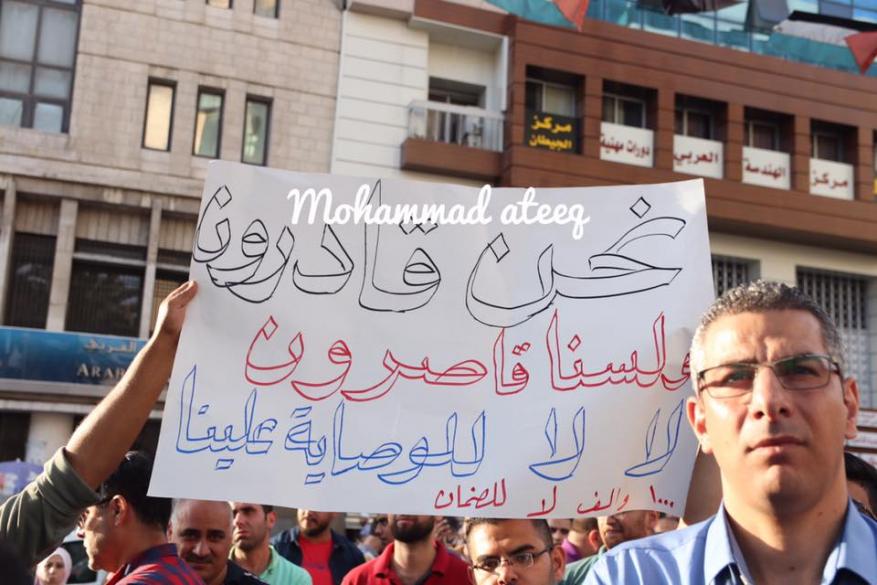 مركز
الجيطان
دورات مهنية
العربي
الهندسة
مركز
Mohammad ateeq
نحن قادرون
ولسنا قاصرون
لا لا للوصاية علينا
١٠٠٠ والف لا للضمان
ARAB